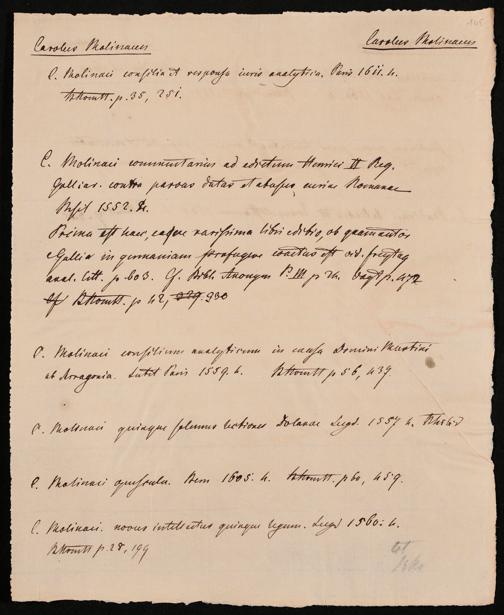 145
Carolus Molinaeus Carolus Molinaeus
C. Molinaei consilia et responsa iuris analytica. Paris 1611. 4.
p. 35, 251.
C. Molinaei commentarius ad edictum Henrici II Reg.
Galliar. contra parvas datas et abusus curiae Romanae
Basil 1552. 8.
Prima est haec, eaque rarissima libri editio, ob quam autor
Gallia in germaniam profugere coactus est vid. freytag
anal. litt. p. 603. Cf. Bibl. Anonym P. III p 24. Vogt p. 472
p. 42, 930
C. Molinaei consilium analyticum in causa Domini Martini
ab Arragonia. Lutet Paris 1559. 4. p 56, 439.
C. Molinaei quinque solemnes lectiones Dolanae Lugd. 1557 4.
C. Molinaei opuscula. Bern 1605. 4. p 60, 459.
C. Molinaei. novus intellectus quinque legum. Lugd 1560. 4.
p. 28, 199